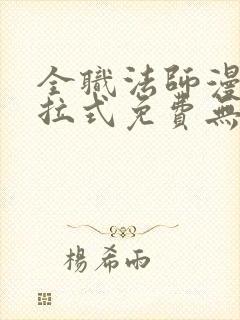 全職法師漫
拉式免費無
楊希雨